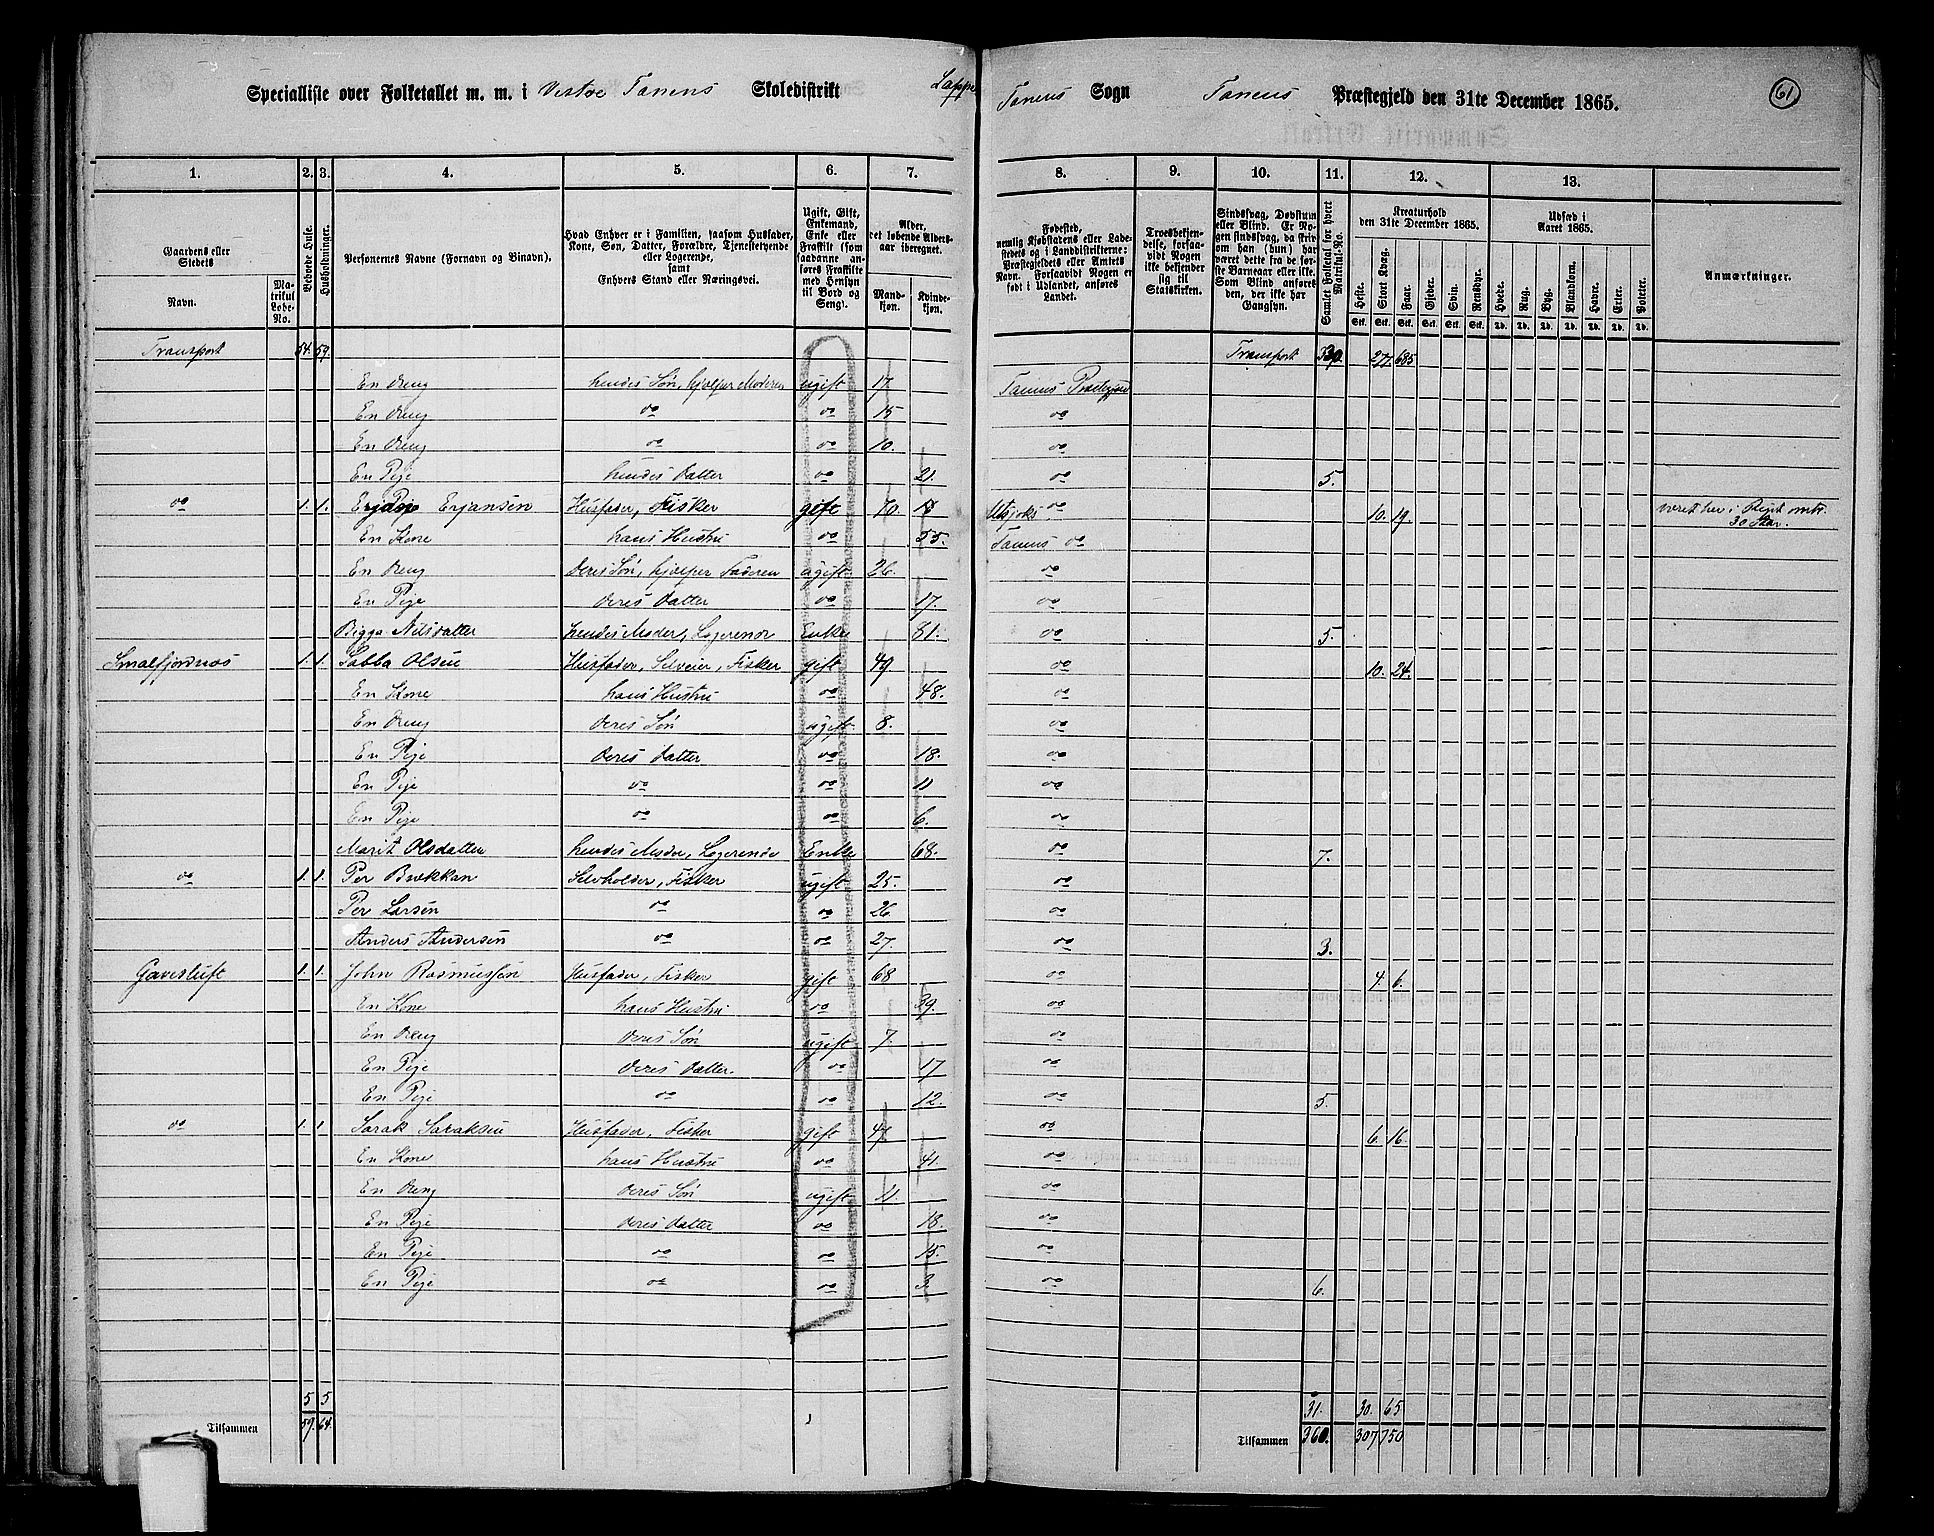 Specialliste over Folketallet m. m. i Vestre Tanens Skoledistrikt Lappe
Tanens Sogn Tanens Præstegjeld den 31te December 1865. 61
1. 2. 3. 4. 5. 6. 7. 8. 9. 10. 11. 12. 13.
Gaardens eller Stedets
Navn. Matrikul Løbe-No.
Beboede Huse.
Husholdninger.
Personernes Navne (Fornavn og Binavn).
Hvad Enhver er i Familien, saasom Husfader, Kone, Søn, Datter, Forældre, Tjenestetyende eller Logerende, samt Enhvers Stand eller Næringsvei.
Ugift, Gift, Enkemand, Enke eller Fraskilt (som saadanne anføres Fraskilte med Hensyn til Bord og Seng).
Alder, det løbende Aldersaar iberegnet.
Mandkjøn. Kvindekjøn.
Fødested, nemlig Kjøbstadens eller Ladestedets og i Landdistrikterne: Præstegjeldets eller Amtets Navn. Forsaavidt Nogen er født i Udlandet, anføres Landet.
Troesbekjendelse, forsaavidt Nogen ikke bekjender sig til Statskirken.
Sindssvag, Døvstum eller Blind. Er Nogen sindssvag, da skrives om han (hun) har været dette fra de første Barneaar eller ikke. Som Blind anføres den, der ikke har Gangsyn.
Samlet Folketal for hvert Matrikul-No.
Kreaturhold den 31te December 1865.
Heste. Stort Kvæg. Faar. Gjeder. Svin. Rensdyr.
Udsæd i Aaret 1865.
Hvede. Rug. Byg. Blandkorn. Havre. Erter. Poteter.
Anmærkninger.
Transport 54. 59. Transport 27 685
En Dreng hendes Søn, hjælper Moderen ugift 17. Tanens Præstegjeld
En Dreng do do 15 do
En Dreng do do 10. do
En Pige hendes Datter do 21. do 5.
do 1. 1. Erjansen Husfader, Fisker gift 70. Utsjoki 10. 19. været her i Rigit omtr. 30 Aar.
En Kone hans Hustru do 55. Tanens do
En Dreng Deres Søn, hjælper Faderen ugift 26. do
En Pige Deres Datter do 17. do
Bigga Nilsdatter hendes Moder, Logerende Enke 81. do 5.
Smalfjordnæs 1. 1. Sabba Olsen Husfader, Selveier, Fisker gift 49 do 10. 24.
En Kone hans Hustru do 48. do
En Dreng Deres Søn ugift 8. do
En Pige Deres Datter do 18. do
En Pige do do 11 do
En Pige do 6. do
Marit Olsdatter hendes Moder, Logerende Enke 68. do 7.
do 1. 1. Per Bækkan Selvholder, Fisker ugift 25. do
Per Larsen do do 26 do
Anders Andersen do do 27. do 3.
Gavesluft 1. 1. John Rasmussen Husfader, Fisker gift 68 do 4. 6.
En Kone hans Hustru do 39. do
En Dreng Deres Søn ugift 7. do
En Pige Deres Datter. do 17 do
En Pige do do 12. do 5.
do 1. 1 Sarak Saraksen Husfader, Fisker gift 47 do 6. 16.
En Kone hans Hustru do 41. do
En Dreng Deres Søn ugift 11. do
En Pige Deres Datter do 18. do
En Pige do do 15. do
En Pige do do 3 do 6.
5 5 31. 30. 65
Tilsammen 59. 64. Tilsammen 360. 307 750